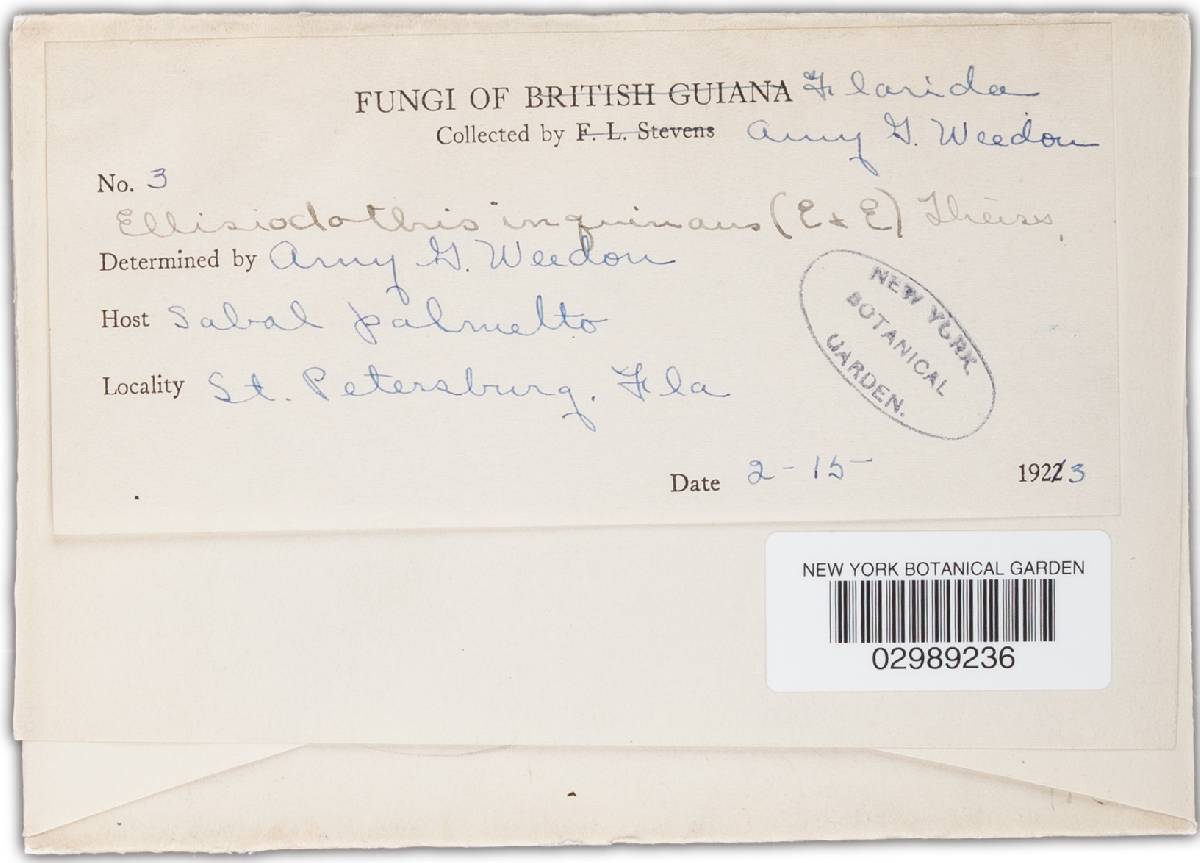 FUNGI OF BRITISH GUIANA Florida
Collected by F. L. Stevens Amy G. Weedon
No. 3
Ellisiodothis inquinans (E & E) Theiss.
Determined by Amy G. Weedon
Host Sabal palmetto
Locality St. Petersburg, Fla
NEW YORK
BOTANICAL
GARDEN.
Date 2-15- 19223
NEW YORK BOTANICAL GARDEN
02989236